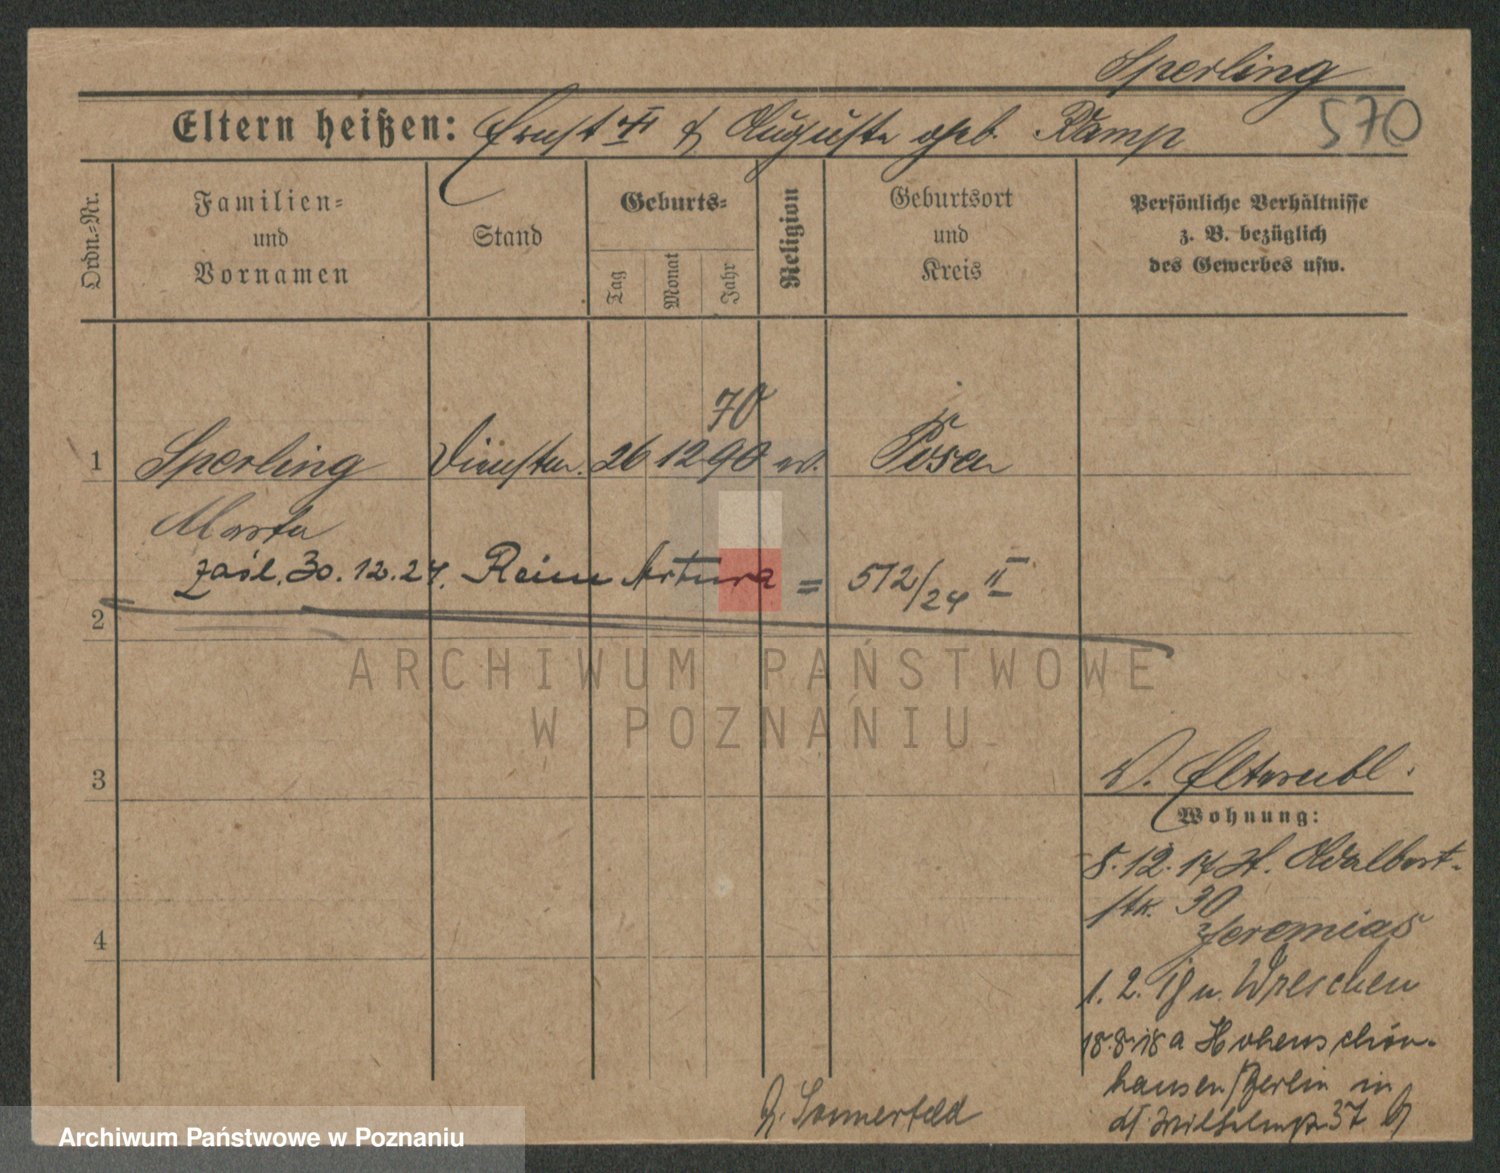 Sperling
570
Eltern heißen: Ernst † & Auguste geb. Kamp
Ordn.-Nr.
Familien-
und
Vornamen
Stand
Geburts-
Tag
Monat
Jahr
Religion
Geburtsort
und
Kreis
Persönliche Verhältnisse
z. B. bezüglich
des Gewerbes usw.
70
1 Sperling 26 12 90 Posen
Marta
zaśl. 30.12.24. Reim Artura = 512/24 II
2
ARCHIWUM PAŃSTWOWE
W POZNANIU
3
Wohnung:
8.12.17 Adalbert-
str. 30
Jeremias
1. 2. 18 n. Wreschen
18.8.18 a Hohenschön-
hausen/Berlin in
37
4
Sommerfeld
Archiwum Państwowe w Poznaniu